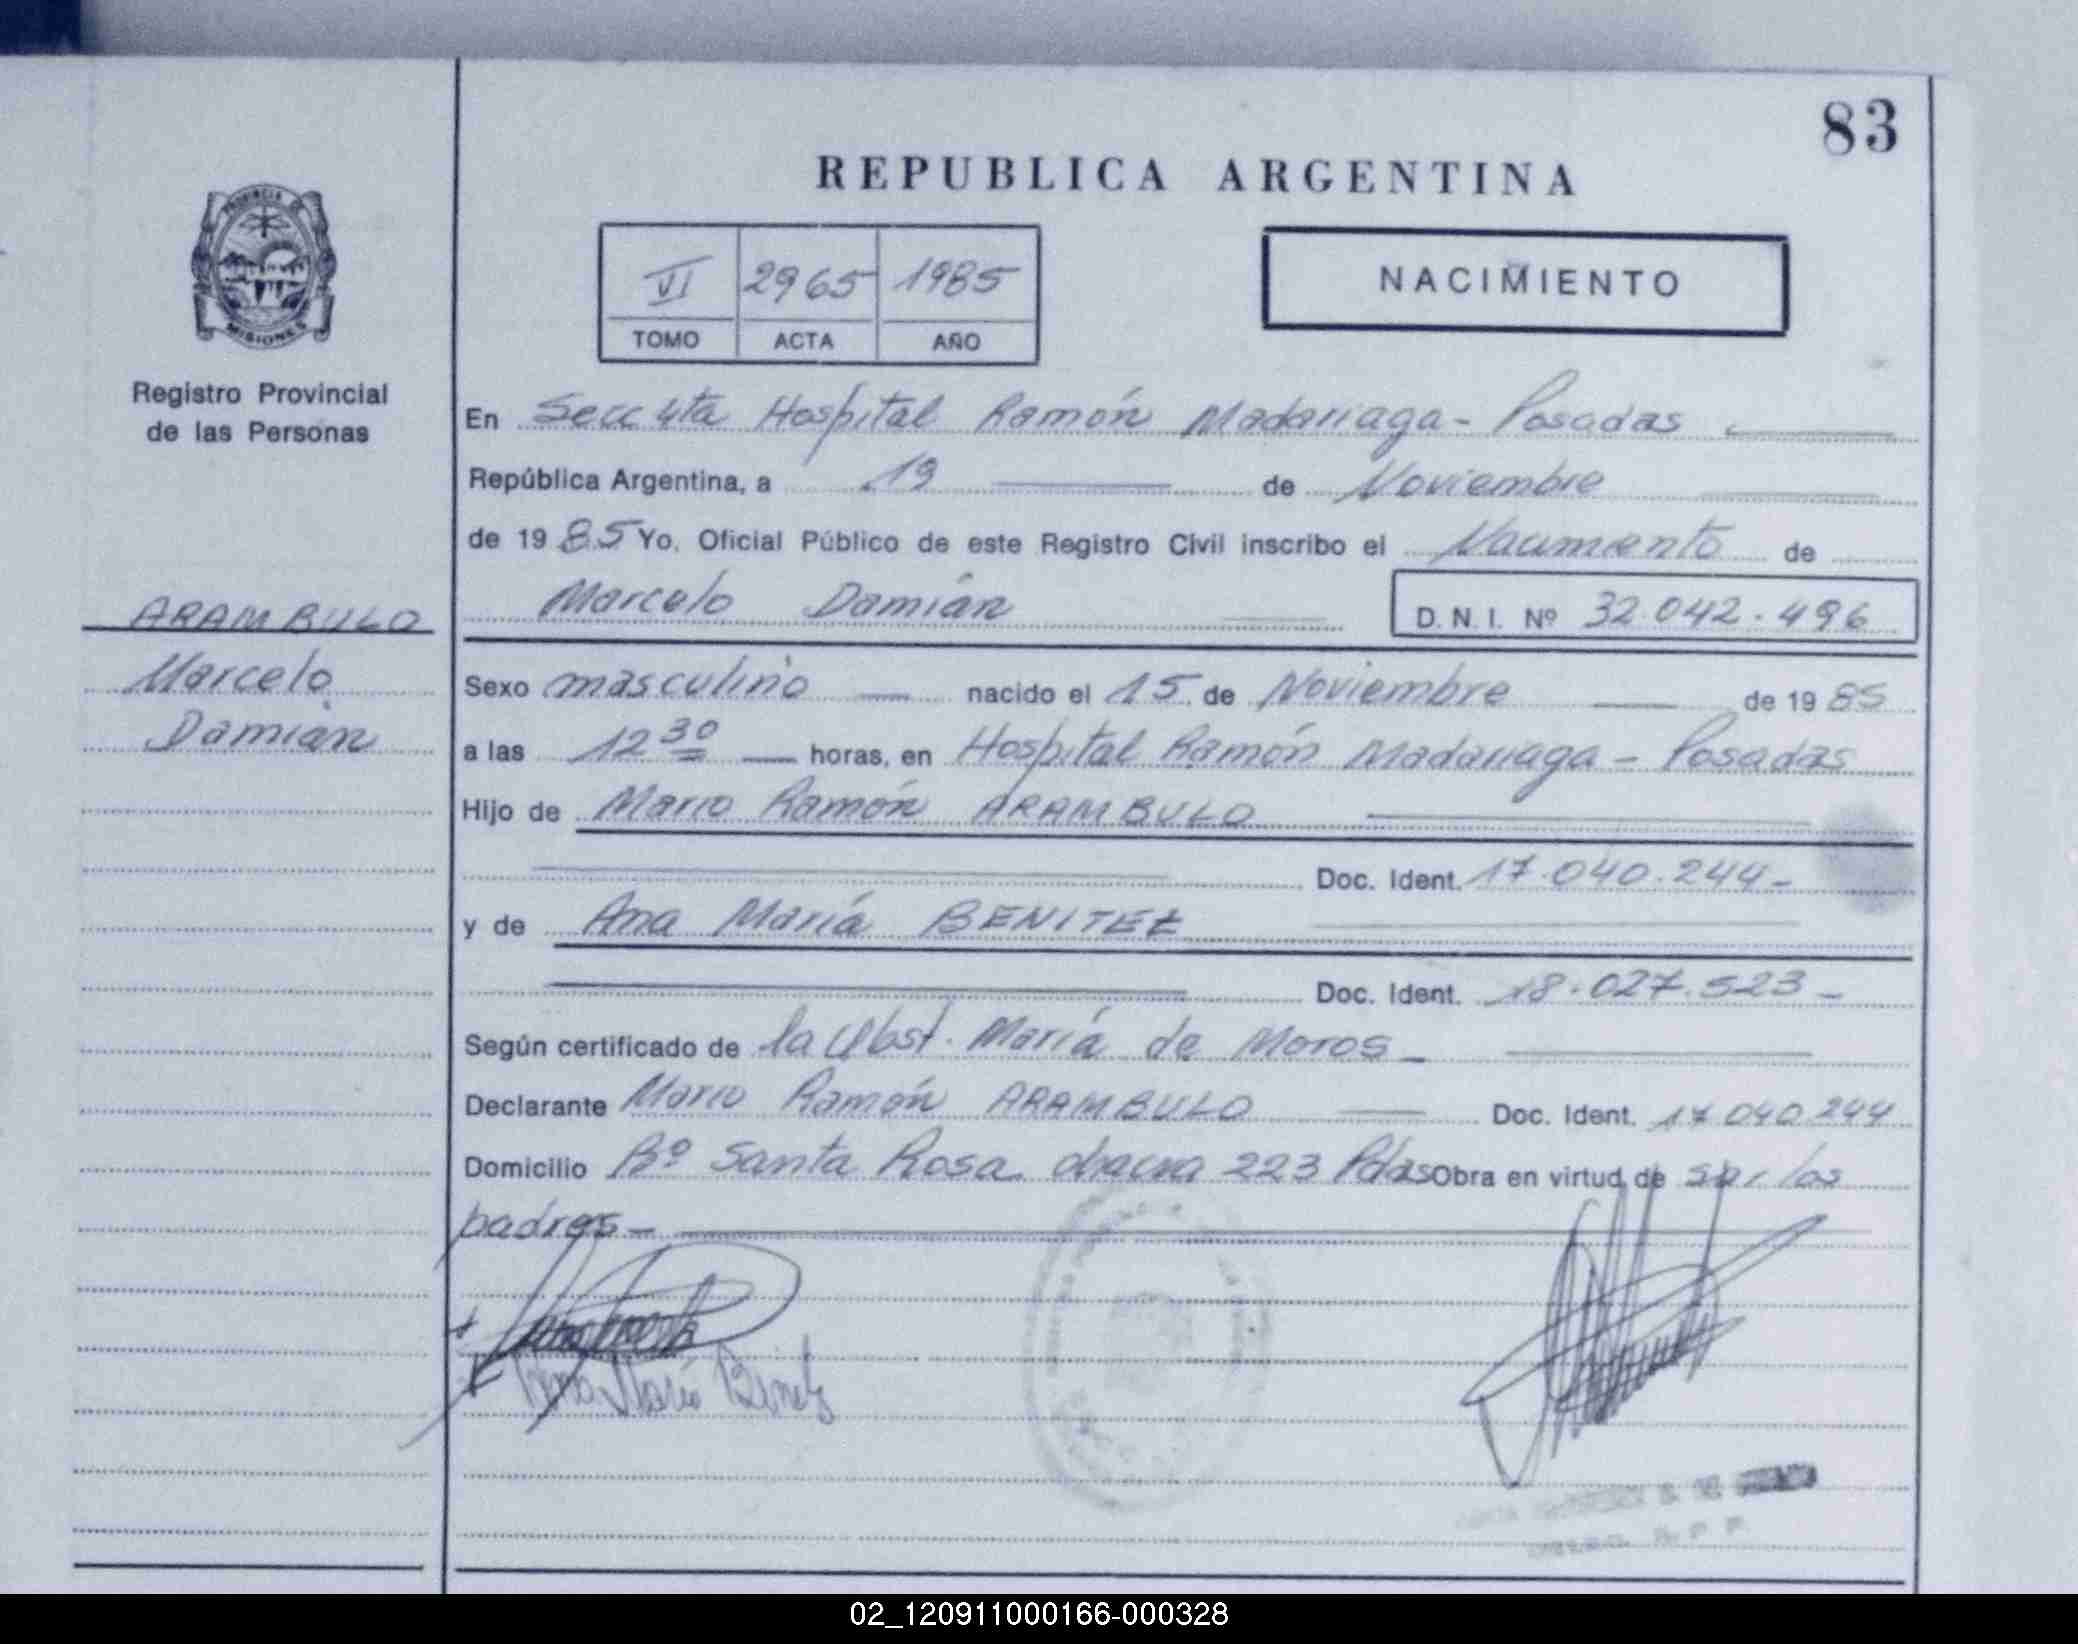 83
REPUBLICA ARGENTINA
PROVINCIA DE
MISIONES
Registro Provincial
de las Personas
VI 2965 1985
TOMO ACTA AÑO
NACIMIENTO
En Secc 4ta Hospital Ramón Madariaga - Posadas
República Argentina, a 19 de Noviembre
de 1985 Yo, Oficial Público de este Registro Civil inscribo el Nacimiento de
Marcelo Damián D. N. I. Nº 32.042.496
ARAMBULO
Marcelo
Damián
Sexo masculino nacido el 15 de Noviembre de 1985
a las 12 30 horas, en Hospital Ramón Madariaga - Posadas
Hijo de Mario Ramón ARAMBULO
Doc. Ident. 17.040.244-
y de Ana María BENITEZ
Doc. Ident. 18.027.523-
Según certificado de la Obst. María de Moros-
Declarante Mario Ramón ARAMBULO Doc. Ident. 17.040.244
Domicilio Bº Santa Rosa chacra 223 Pdas Obra en virtud de ser los
padres-
Ana María Benitez
02_120911000166-000328